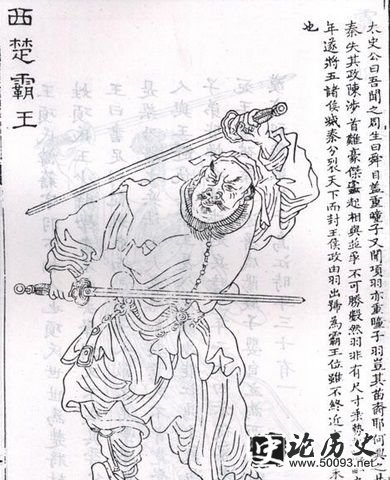 太史公曰吾聞之周生曰舜目盖重瞳子又聞項羽亦重瞳子羽豈其苗裔耶何興之
秦失其政陳涉首難豪傑蠭起相與並爭不可勝數然羽非有尺寸乘勢
年遂將五諸侯滅秦分裂天下而封王侯政由羽出號為霸王位雖不終近
也
西楚霸王
论历史
www.50093.net